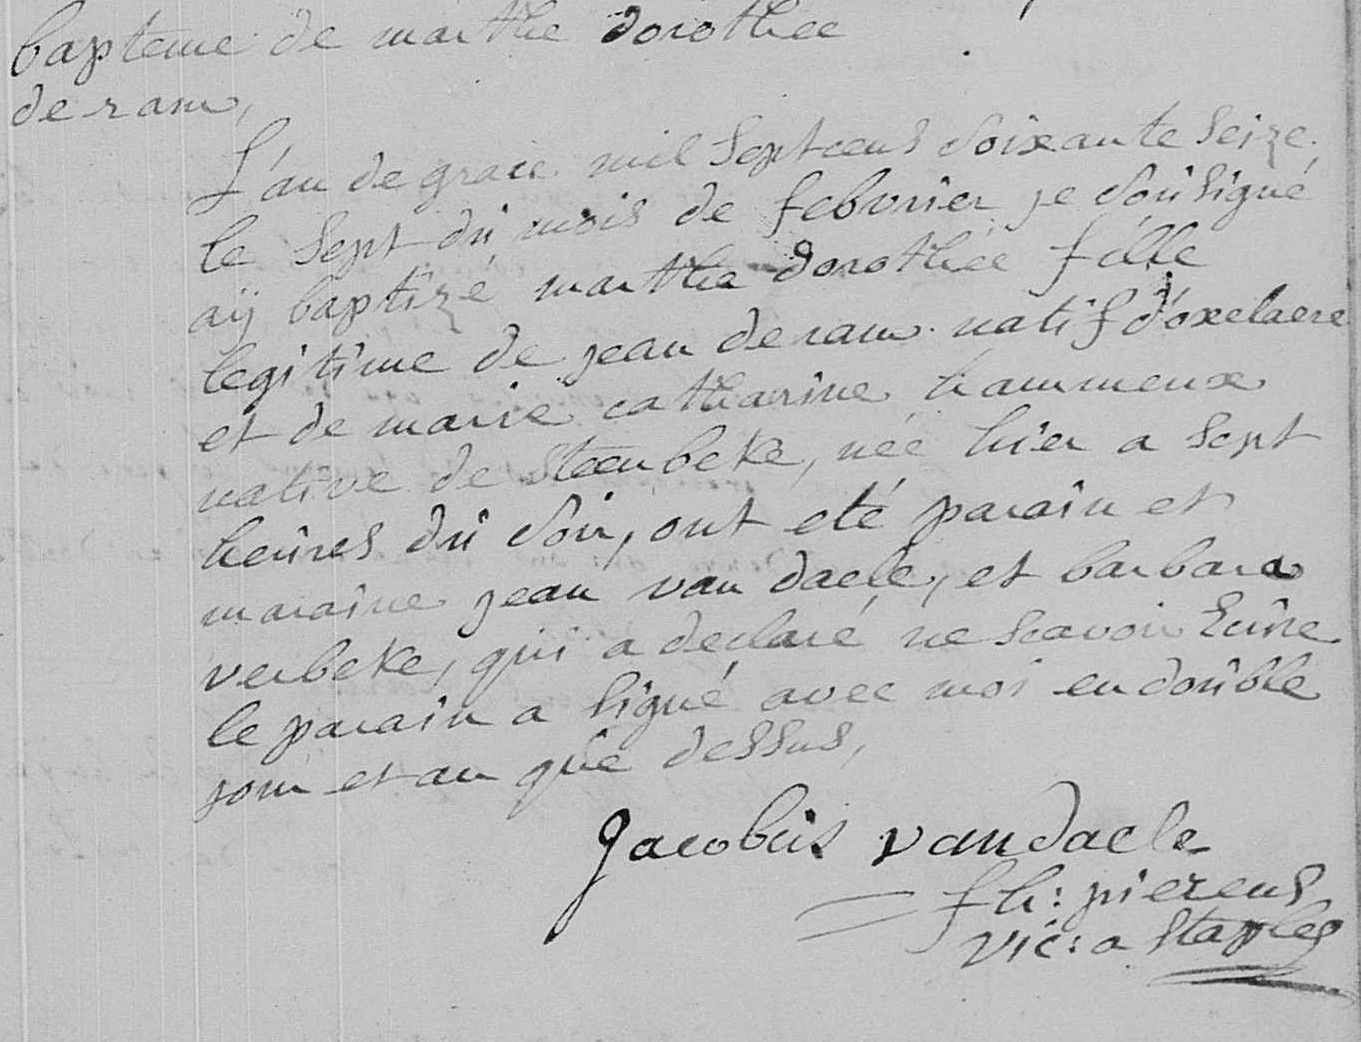 bapteme de marthe dorothee
de ram,
L'an de grace mil septcens soixante seize
le sept du mois de febvrier je sousigné
aÿ baptizé marthe dorothée fille
legitime de jean de ram natif d'oxelaere
et de marie catharine hammeux
native de steenbeke, née hier a sept
heures du soir, ont eté parain et
maraine jean van daele, et barbara
verbeke, qui a declaré ne scavoir Ecrire
le parain a signé avec moi en double
jour et an que dessus,
Jacobus vandaele
f h: pierens
vic: a Staples